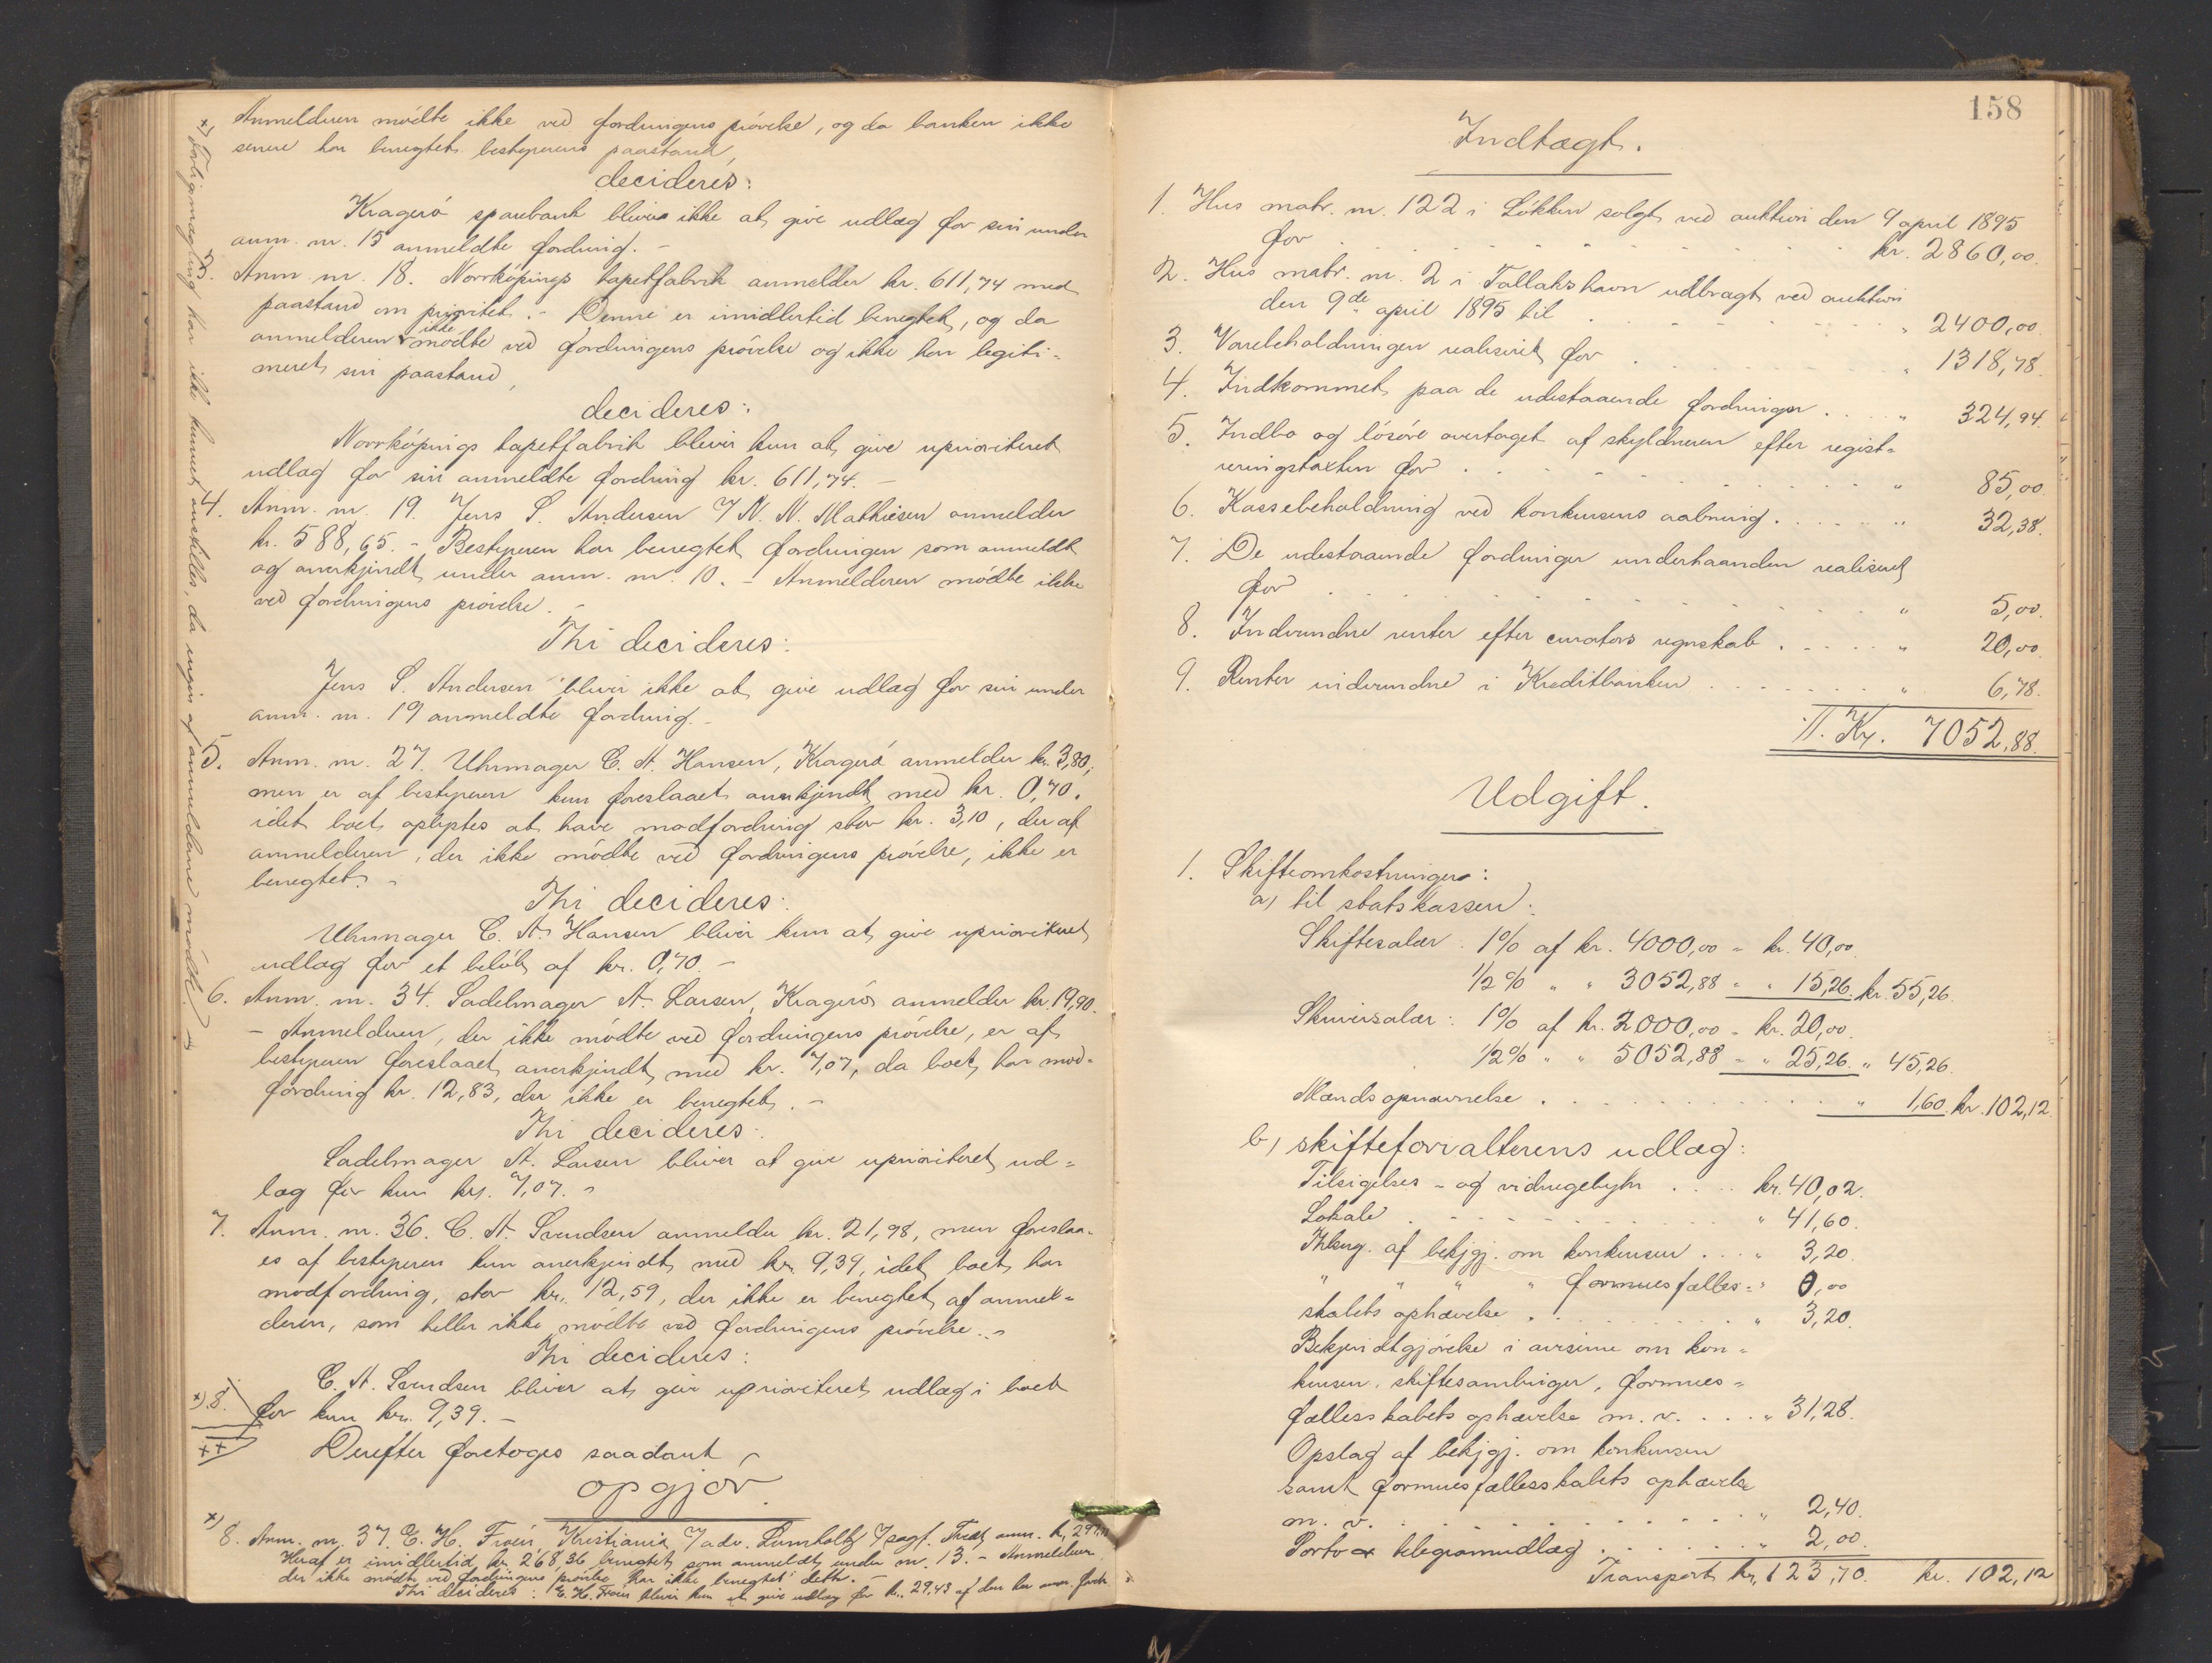 Anmelderen mödte ikke ved fordringens prövelse, og da banken ikke
senere har benegtet bestyrerens paastand,
decideres:
Kragerö sparebank bliver ikke at give udlæg for sin under
anm. nr. 15 anmeldte fordring. –
3. Anm. nr. 18. Norrköpings tapetfabrik anmelder kr. 611,74 med
paastand om prioritet. – Denne er imidlertid benegtet, og da
anmelderen ikke mödte ved fordringens prövelse og ikke har legiti-
meret sin paastand,
decideres:
Norrköpings tapetfabrik bliver kun at give uprioriteret
udlæg for sin anmeldte fordring kr. 611,74. –
4. Anm. nr. 19. Jens S. Andersen / N. N. Mathiesen anmelder
kr. 588,65. – Bestyreren har benegtet fordringen som anmeldt
og anerkjendt under anm. nr. 10. – Anmelderen mödte ikke
ved fordringens prövelse. –
Thi decideres:
Jens S. Andersen bliver ikke at give udlæg for sin under
anm. nr. 19 anmeldte fordring. –
5. Anm. nr. 27. Uhrmager C. A. Hansen, Kragerö anmelder kr. 3,80,
men er af bestyreren kun foreslaaet anerkjendt med kr. 0,70.
idet boet oplystes at have modfordring stor kr. 3,10, der af
anmelderen, der ikke mödte ved fordringens prövelse, ikke er
benegtet. –
Thi decideres:
Uhrmager C. A. Hansen bliver kun at give uprioriteret
udlæg for et belöb af kr. 0,70. –
6. Anm. nr. 34. Sadelmager A. Larsen, Kragerö anmelder kr. 19,90.
– Anmelderen, der ikke mödte ved fordringens prövelse, er af
bestyreren foreslaaet anerkjendt med kr. 7,07, da boet har mod-
fordring kr. 12,83, der ikke er benegtet. –
Thi decideres:
Sadelmager A. Larsen bliver at give uprioriteret ud-
læg for kun kr. 7,07. –
7. Anm. nr. 36. C. A. Svendsen anmelder kr. 21,98, men foreslaa-
es af bestyreren kun anerkjendt med kr. 9,39, idet boet har
modfordring, stor kr. 12,59, der ikke er benegtet af anmel-
deren, som heller ikke mödte ved fordringens prövelse. –
Thi decideres:
C. A. Svendsen bliver at give uprioriteret udlæg i boet
x) 8. for kun kr. 9,39. –
xx Derefter foretoges saadant
opgjör
x) 8. Anm. nr. 37. E. H. Kristiania / adv. Lumholtz / sagf. anm. kr. 297
Heraf er imidlertid kr. 268,36 benegtet som anmeldt under nr. 13. – Anmelderen
der ikke mödte ved fordringens prövelse har ikke benegtet dette. –
Thi decideres: E. H. bliver kun at give udlæg for kr. 29,43 af den
x) Forligsmægling har ikke kunnet anstilles, da ingen af anmelderne mödte –
158
Indtægt.
1. Hus matr. nr. 122 i Lökken solgt ved auktion den 9 april 1895
for kr. 2860,00.
2. Hus matr. nr. 2 i Tallakshavn udbragt ved auktion
den 9de april 1895 til " 2400,00.
3. Varebeholdningen realiseret for " 1318,78.
4. Indkommet paa de udestaaende fordringer " 324,94.
5. Indbo og lösöre overtaget af skyldneren efter regist-
reringstaxten for " 85,00.
6. Kassebeholdning ved konkursens aabning " 32,38.
7. De udestaaende fordringer underhaanden realiseret
for " 5,00.
8. Indvundne renter efter curators regnskab " 20,00.
9. Renter indvundne i Kreditbanken " 6,78.
Tl. Kr. 7052,88.
Udgift.
1. Skifteomkostninger:
a) til statskassen:
Skiftesalær: 1% af kr. 4000,00 = kr. 40,00
1/2 % " " 3052,88 = " 15,26. kr. 55,26.
Skriversalær: 1% af kr. 2000,00 = kr. 20,00.
1/2% " " 5052,88 = " 25,26. " 45,26.
Mændsopnævnelse " 1,60. kr. 102,12.
b) skifteforvalterens udlæg:
Tilsigelses- og vidnegebyhr kr. 40,02.
Lokale " 41,60.
Thlesng. af bekjgj. om konkursen " 3,20.
" " " " formuesfælles- " 0,00
skabets ophævelse " 3,20.
Bekjendtgjörelse i aviserne om kon-
kursen, skiftesamlinger, formues-
fællesskabets ophævelse m. v. " 31,28.
Opslag af bekjgj. om konkursen
samt formuesfællesskabets ophævelse
m. v. " 2,40.
Porto & telegramudlæg " 2,00.
Transport kr. 123,70. kr. 102,12